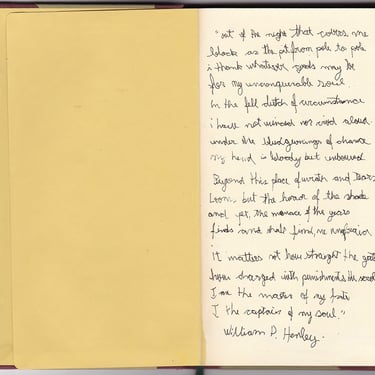 "out of the night that covers me
black as the pit from pole to pole
i thank whatever gods may be
for my unconquerable soul.
In the fell clutch of circumstance
i have not winced nor cried aloud.
under the bludgeonings of chance
my head is bloody but unbowed
Beyond this place of wrath and tears
looms, but the horror of the shade
and yet, the menace of the years
finds and shall find, me
It matters not how straight the gate
how charged with punishments the scroll
I am the master of my fate
I the captain of my soul."
William P. Henley.